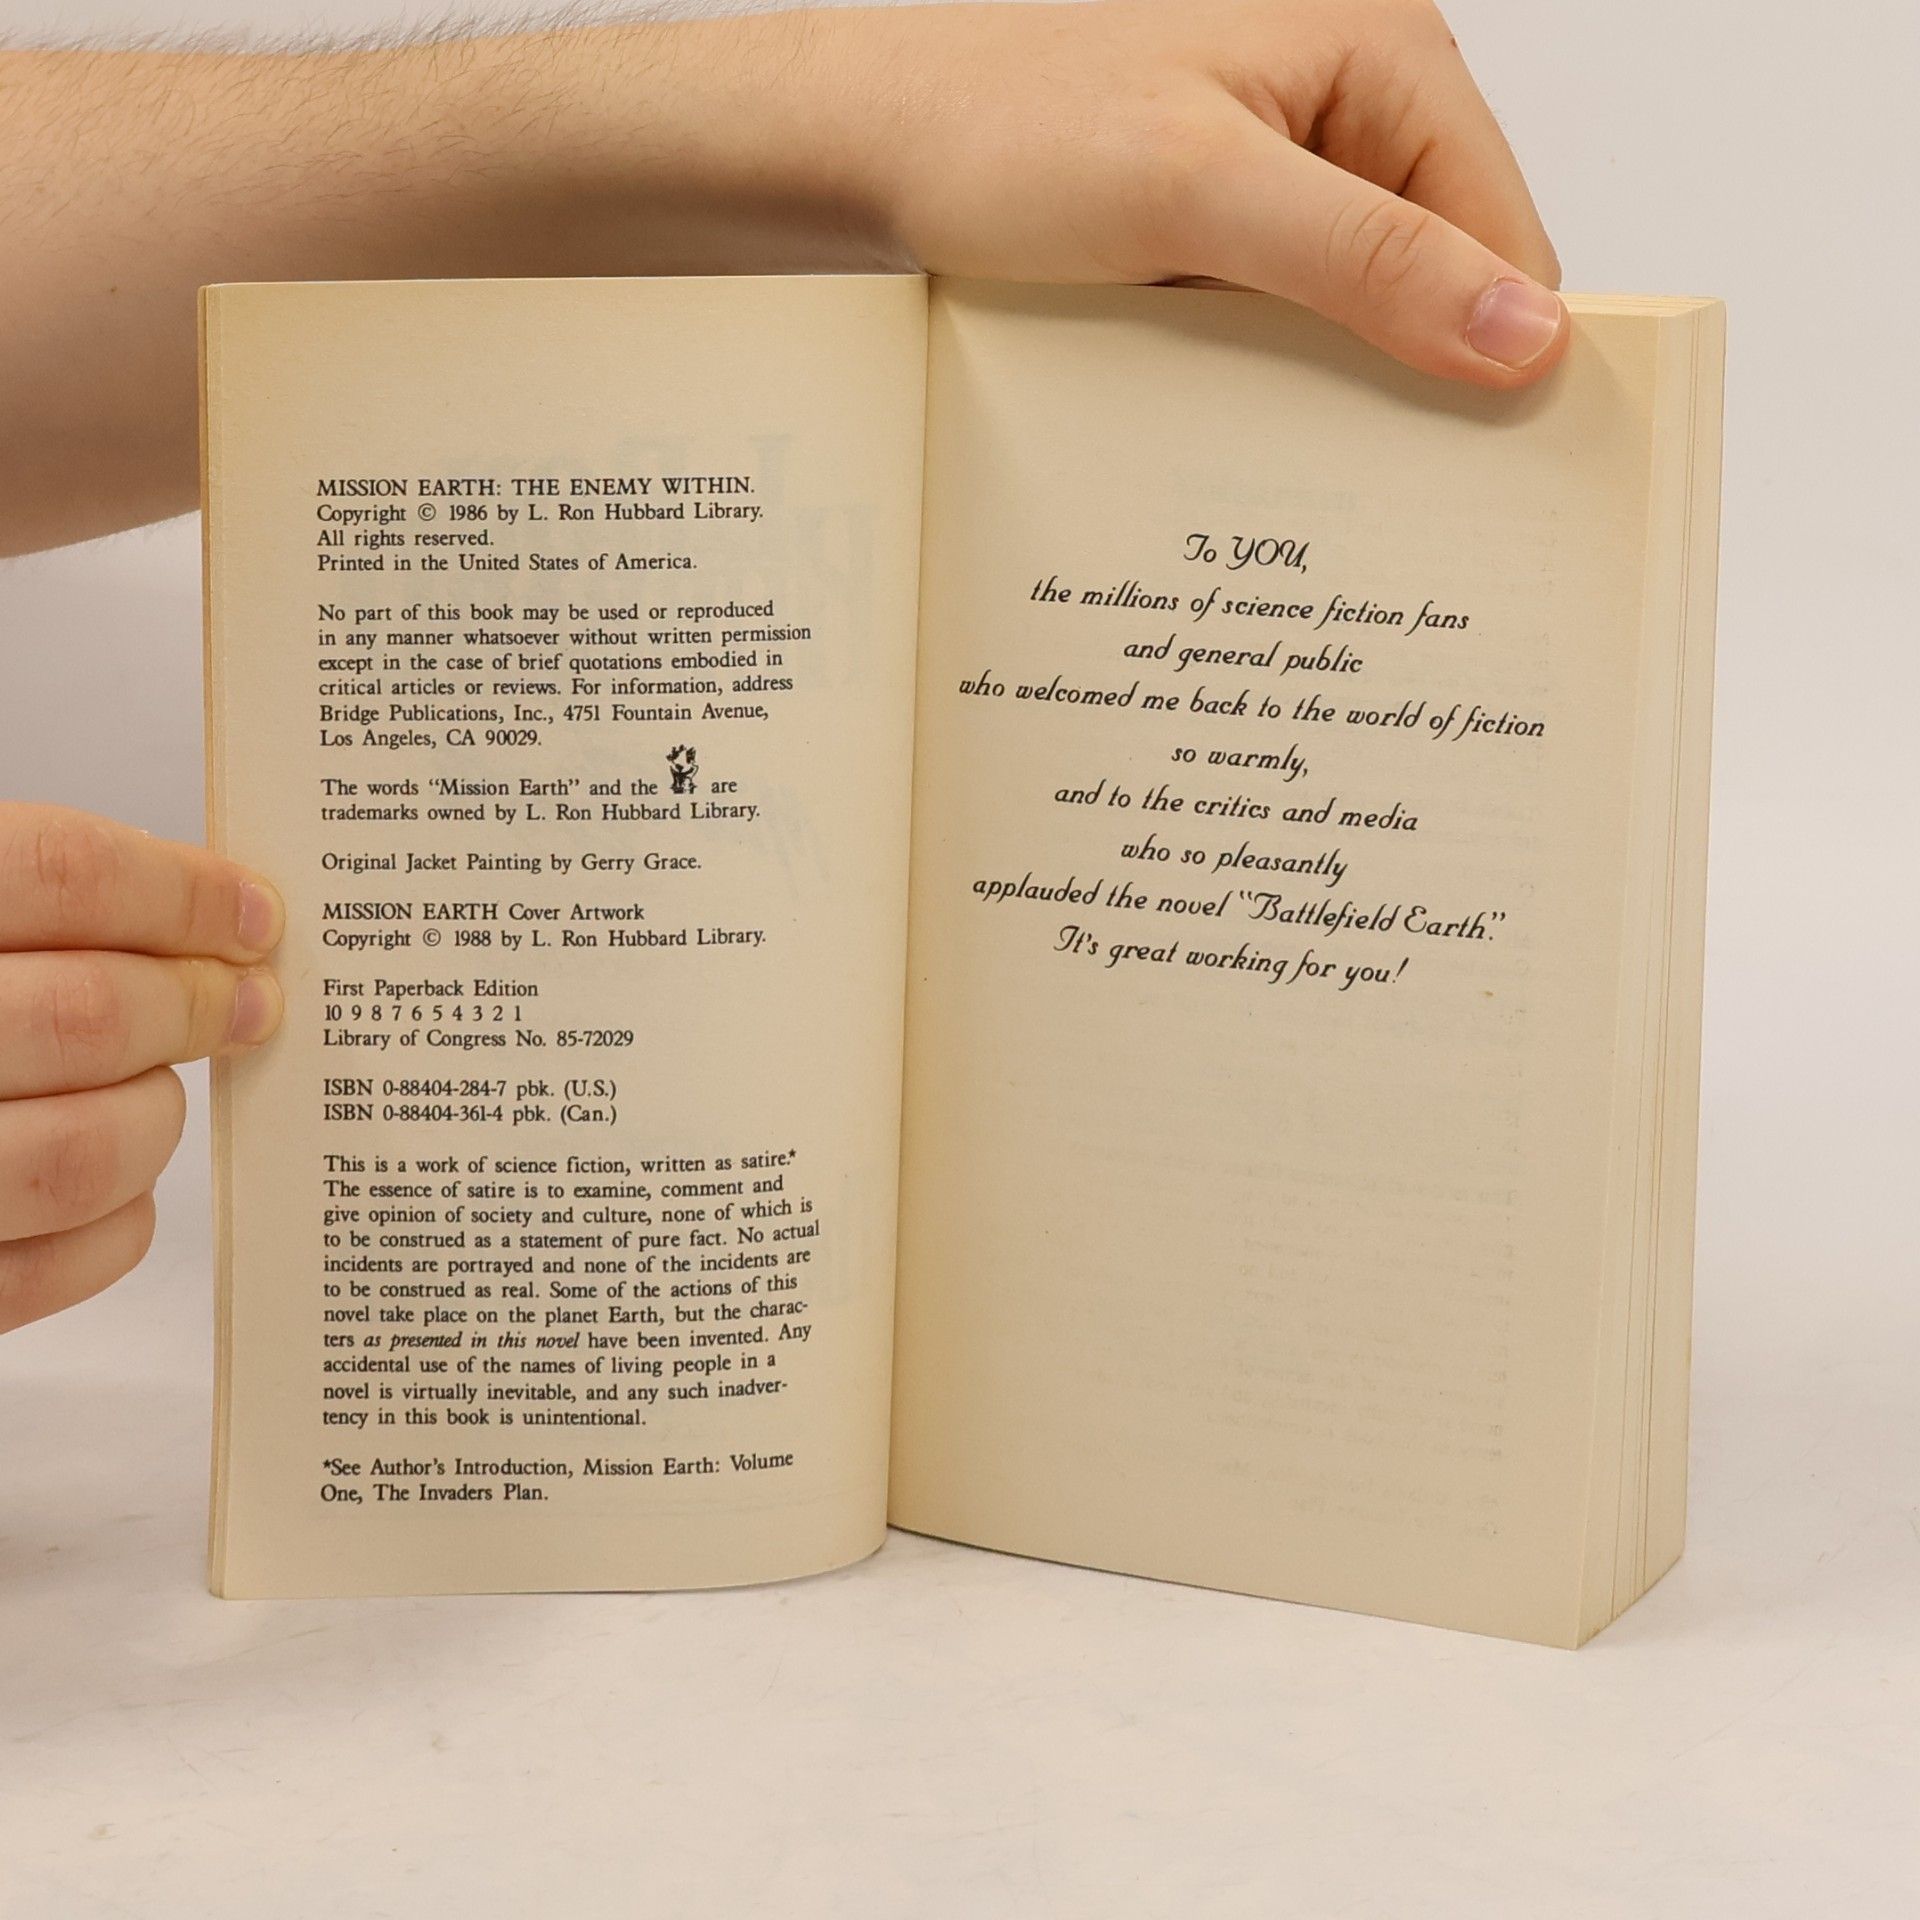 MISSION EARTH: THE ENEMY WITHIN.
Copyright © 1986 by L. Ron Hubbard Library.
All rights reserved.
Printed in the United States of America.
No part of this book may be used or reproduced
in any manner whatsoever without written permission
except in the case of brief quotations embodied in
critical articles or reviews. For information, address
Bridge Publications, Inc., 4751 Fountain Avenue,
Los Angeles, CA 90029.
The words “Mission Earth” and the are
trademarks owned by L. Ron Hubbard Library.
Original Jacket Painting by Gerry Grace.
MISSION EARTH Cover Artwork
Copyright © 1988 by L. Ron Hubbard Library.
First Paperback Edition
10 9 8 7 6 5 4 3 2 1
Library of Congress No. 85-72029
ISBN 0-88404-284-7 pbk. (U.S.)
ISBN 0-88404-361-4 pbk. (Can.)
This is a work of science fiction, written as satire.*
The essence of satire is to examine, comment and
give opinion of society and culture, none of which is
to be construed as a statement of pure fact. No actual
incidents are portrayed and none of the incidents are
to be construed as real. Some of the actions of this
novel take place on the planet Earth, but the charac-
ters as presented in this novel have been invented. Any
accidental use of the names of living people in a
novel is virtually inevitable, and any such inadver-
tency in this book is unintentional.
*See Author’s Introduction, Mission Earth: Volume
One, The Invaders Plan.
To YOU,
the millions of science fiction fans
and general public
who welcomed me back to the world of fiction
so warmly,
and to the critics and media
who so pleasantly
applauded the novel “Battlefield Earth.”
It’s great working for you!